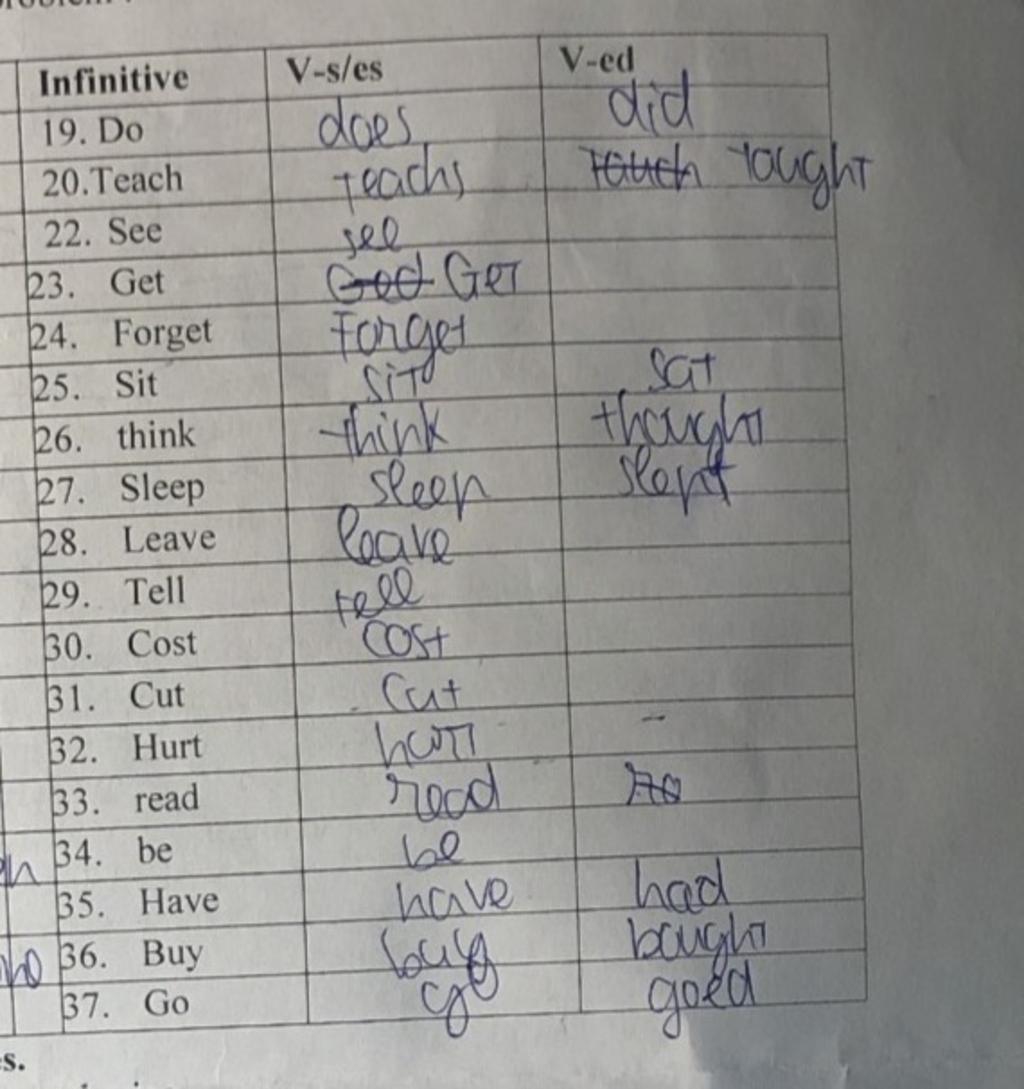 Infinitive V-s/es V-ed
19. Do does did
20.Teach teachs tauch tought
22. See see
23. Get God Get
24. Forget Forget
25. Sit sit sat
26. think think thought
27. Sleep sleep slept
28. Leave leave
29. Tell tell
30. Cost cost
31. Cut Cut
32. Hurt hurt -
33. read read
34. be be
35. Have have had
36. Buy buy bought
37. Go go goed